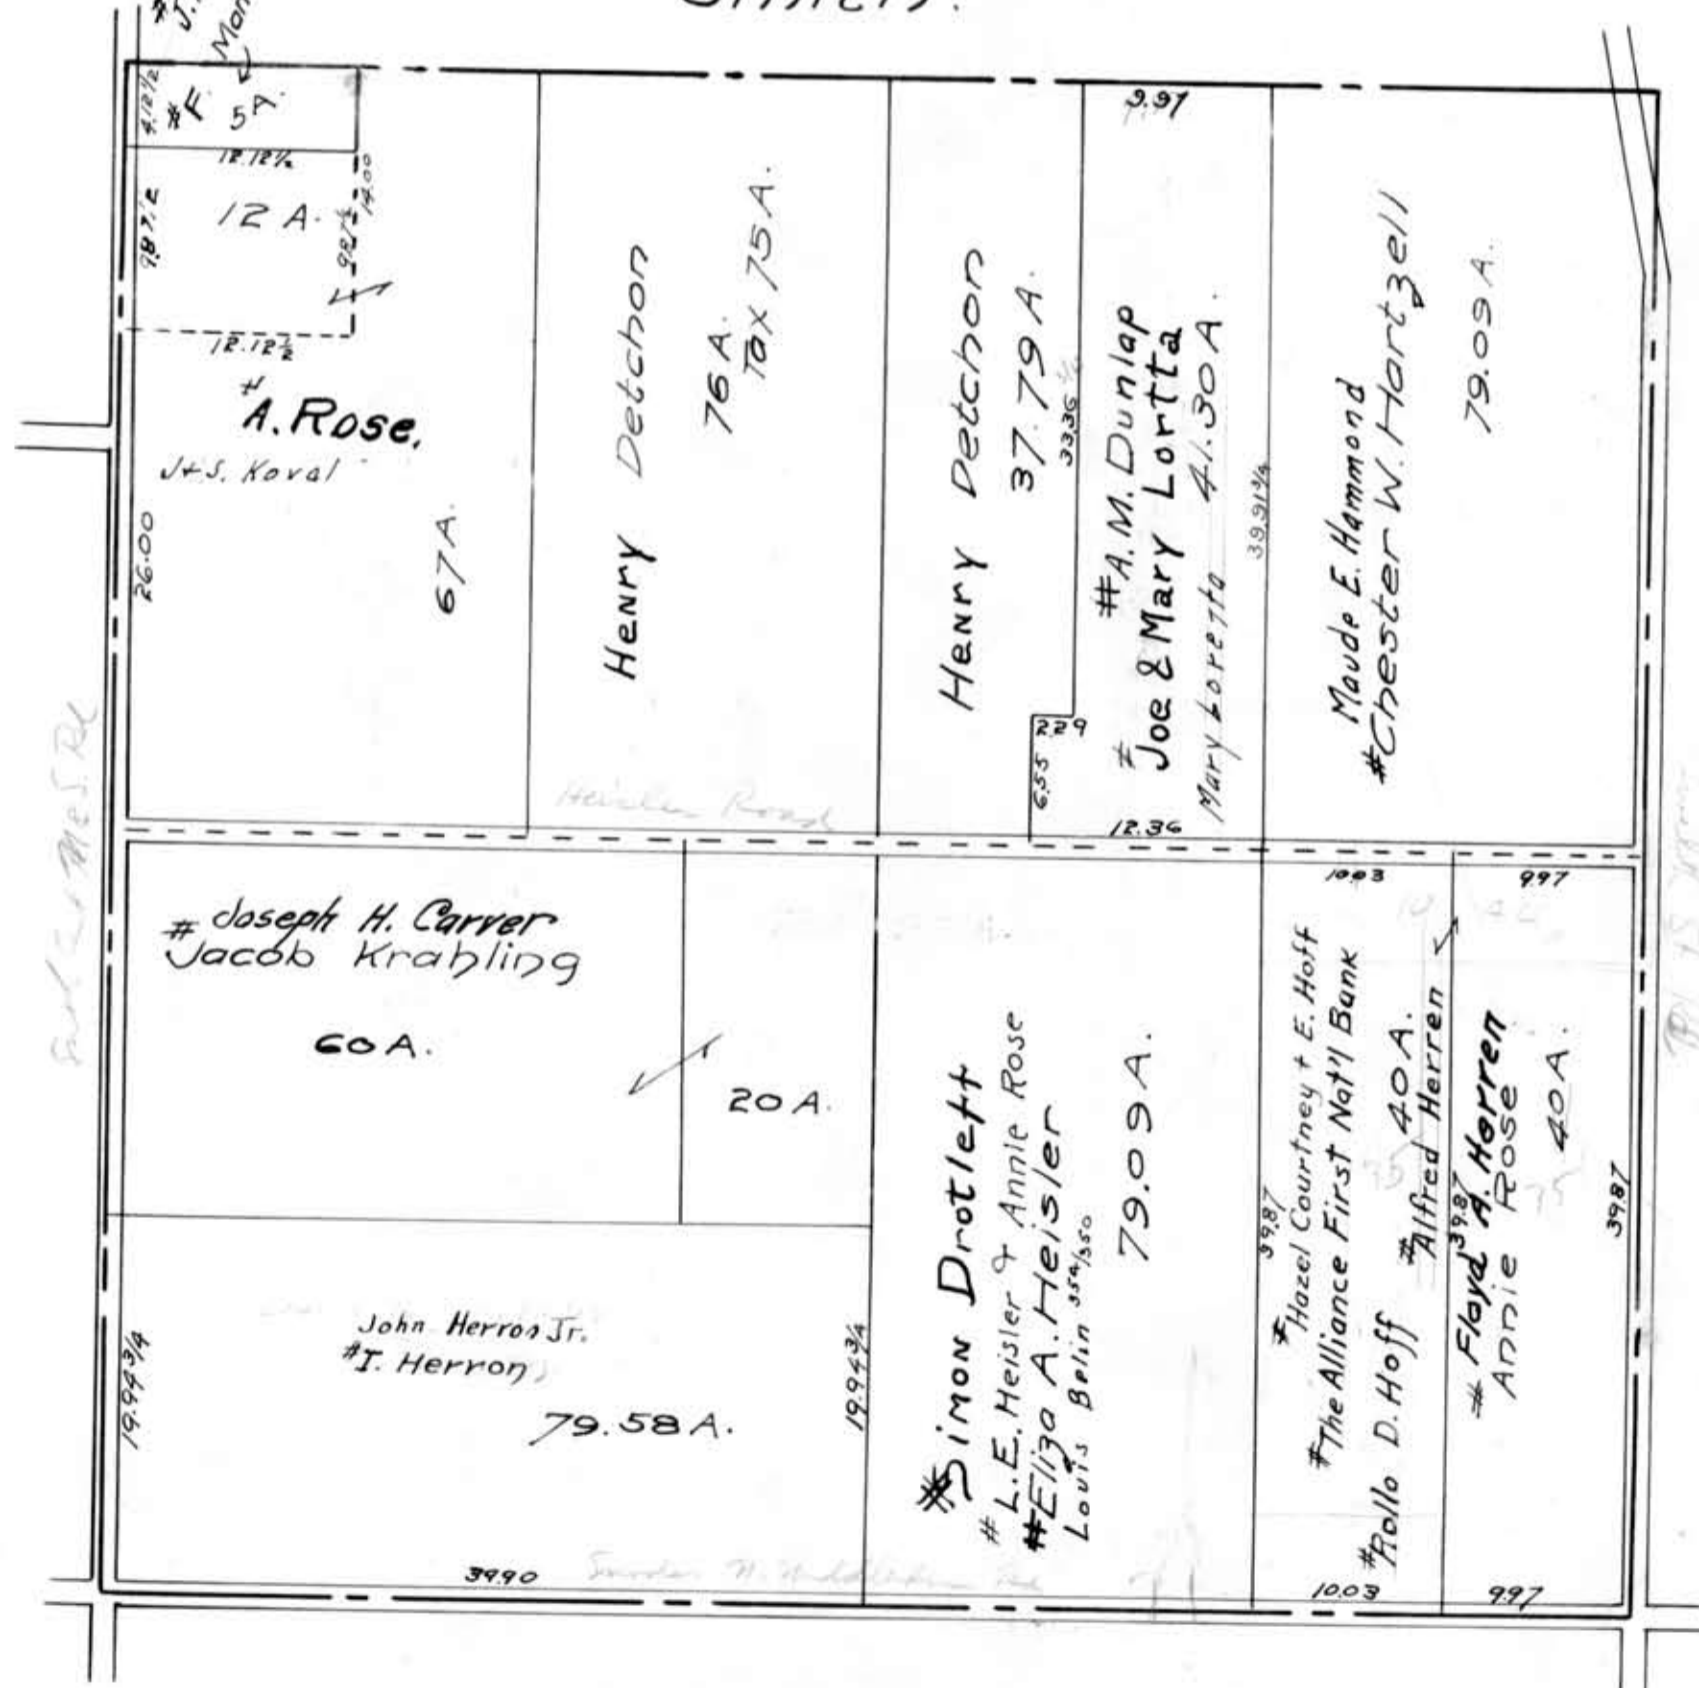 4.12½
#F.
5A.
12.12½
9.87½
12 A.
9.87½
14.00
12.12½
#
A. Rose.
J+S. Koval
26.00
67A.
Henry Detchon
76 A.
Tax 75 A.
Henry Detchon
37.79 A.
33.36
6.55
2.29
9.97
#A.M. Dunlap
# Joe & Mary Lortta
Mary Loretta 41.30 A.
12.36
39.91¾
Maude E. Hammond
#Chester W. Hartzell
79.09 A.
Heisler Road
# Joseph H. Carver
Jacob Krahling
60 A.
20 A.
John Herron Jr.
#I. Herron
79.58 A.
19.94¾
19.94¾
39.90
#Simon Drotleff
# L.E. Heisler & Annie Rose
#Eliza A. Heisler
Louis Belin 354/350
79.09 A.
10.03
39.87
# Hazel Courtney + E. Hoff
#The Alliance First Nat'l Bank
#Rollo D. Hoff 40 A.
#Alfred Herren
10.03
9.97
39.87
# Floyd A. Herren
Annie Rose
40 A.
39.87
9.97